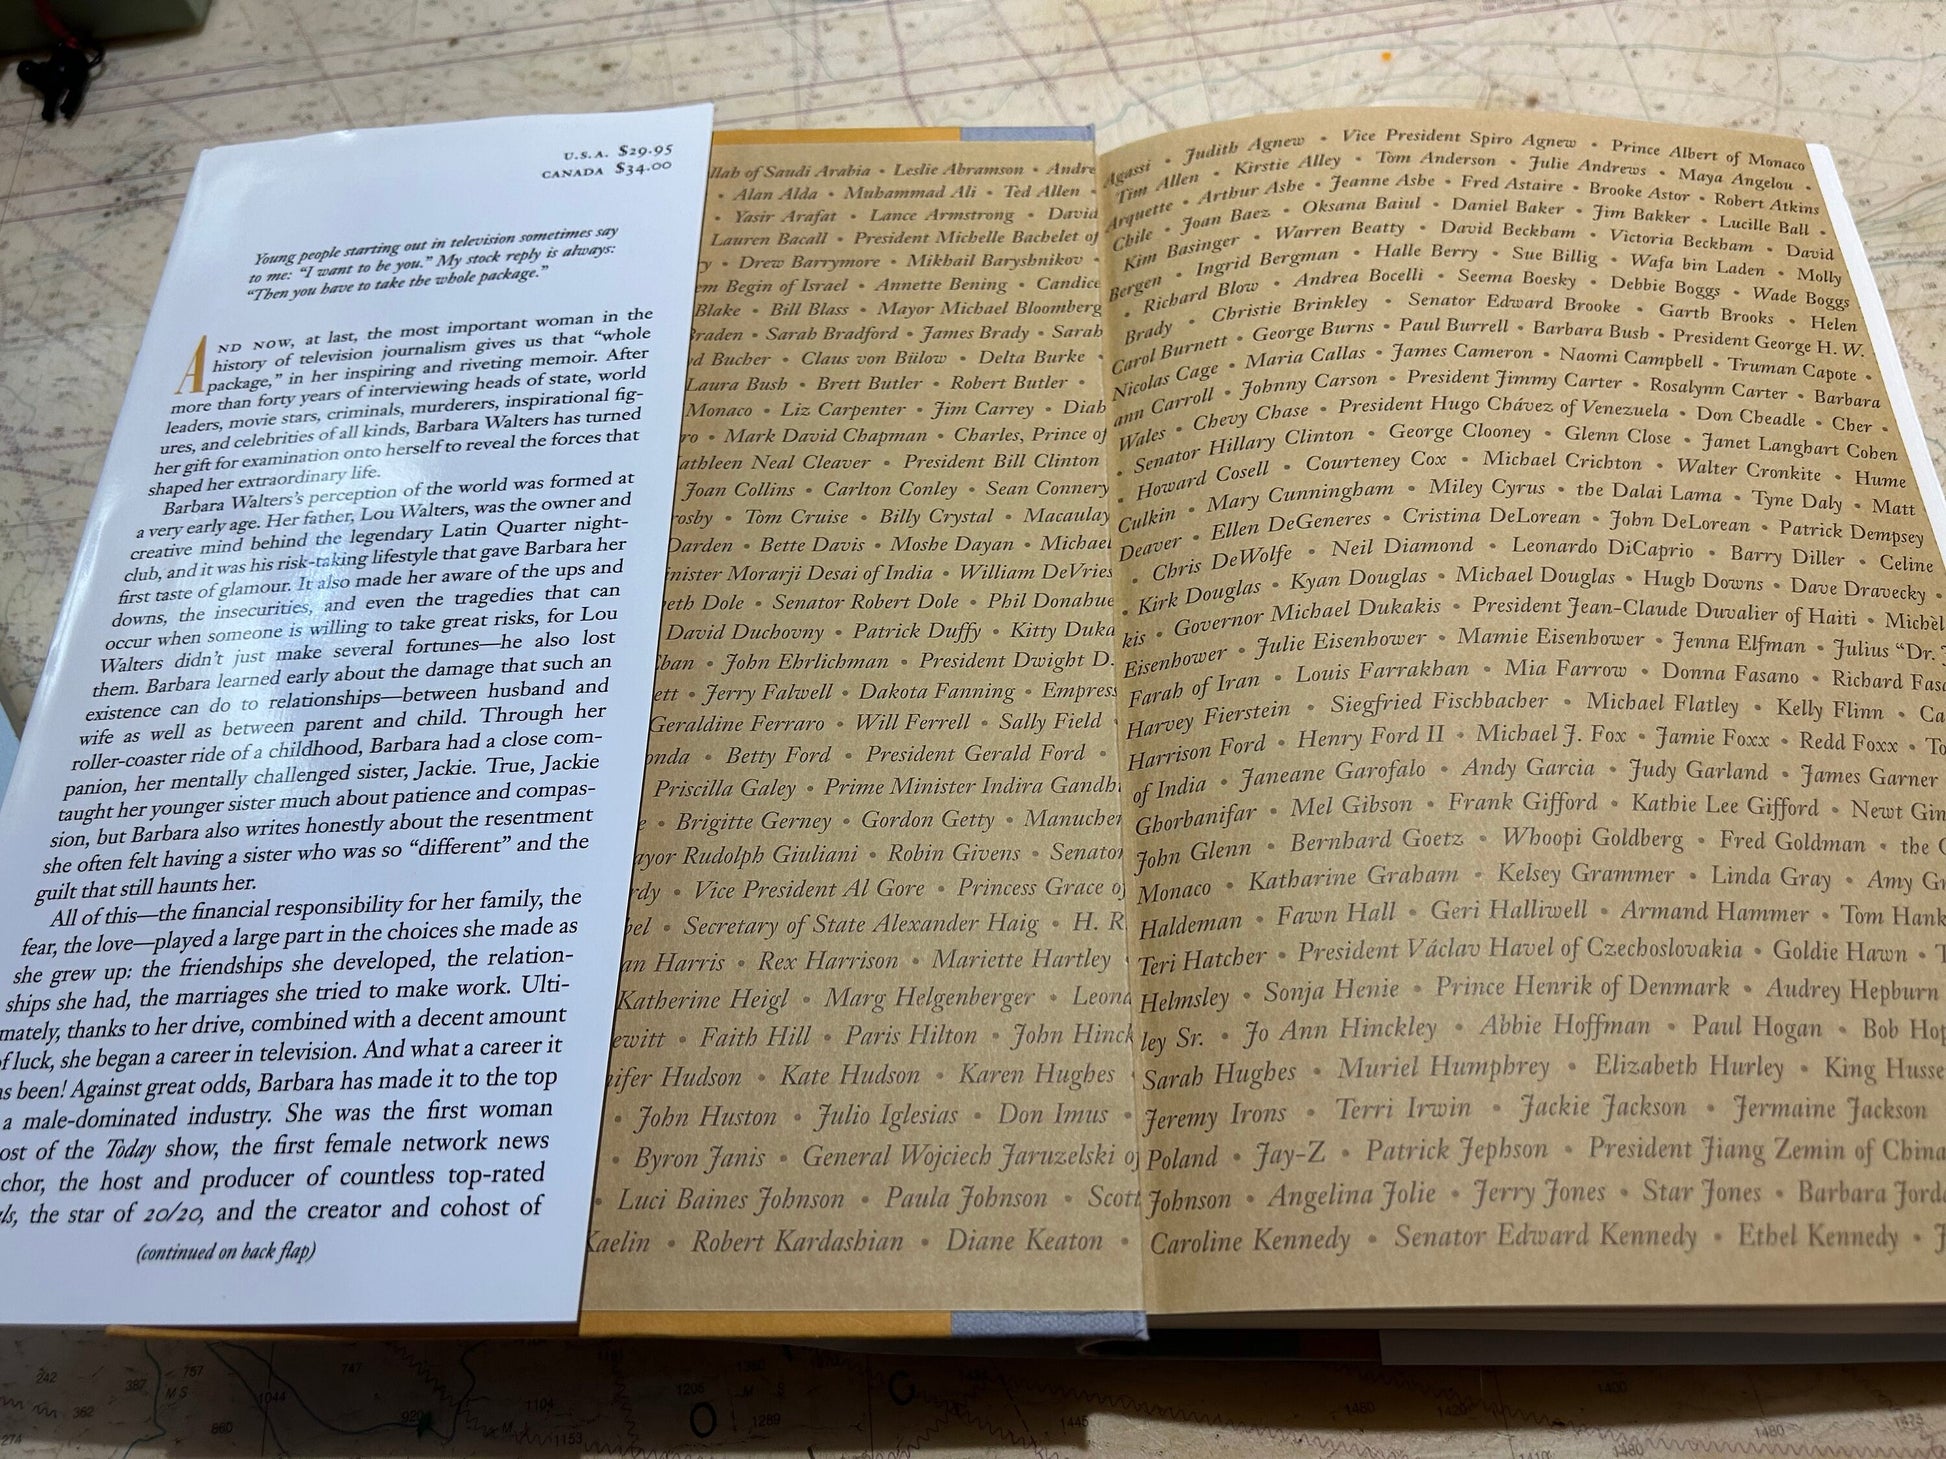 U.S.A. $29.95
CANADA $34.00
Young people starting out in television sometimes say
to me: “I want to be you.” My stock reply is always:
“Then you have to take the whole package.”
AND NOW, at last, the most important woman in the
history of television journalism gives us that “whole
package,” in her inspiring and riveting memoir. After
more than forty years of interviewing heads of state, world
leaders, movie stars, criminals, murderers, inspirational fig-
ures, and celebrities of all kinds, Barbara Walters has turned
her gift for examination onto herself to reveal the forces that
shaped her extraordinary life.
Barbara Walters’s perception of the world was formed at
a very early age. Her father, Lou Walters, was the owner and
creative mind behind the legendary Latin Quarter night-
club, and it was his risk-taking lifestyle that gave Barbara her
first taste of glamour. It also made her aware of the ups and
downs, the insecurities, and even the tragedies that can
occur when someone is willing to take great risks, for Lou
Walters didn’t just make several fortunes—he also lost
them. Barbara learned early about the damage that such an
existence can do to relationships—between husband and
wife as well as between parent and child. Through her
roller-coaster ride of a childhood, Barbara had a close com-
panion, her mentally challenged sister, Jackie. True, Jackie
taught her younger sister much about patience and compas-
sion, but Barbara also writes honestly about the resentment
she often felt having a sister who was so “different” and the
guilt that still haunts her.
All of this—the financial responsibility for her family, the
fear, the love—played a large part in the choices she made as
she grew up: the friendships she developed, the relation-
ships she had, the marriages she tried to make work. Ulti-
mately, thanks to her drive, combined with a decent amount
of luck, she began a career in television. And what a career it
been! Against great odds, Barbara has made it to the top
a male-dominated industry. She was the first woman
of the Today show, the first female network news
the host and producer of countless top-rated
the star of 20/20, and the creator and cohost of
(continued on back flap)
of Saudi Arabia • Leslie Abramson • Andre Agassi • Judith Agnew • Vice President Spiro Agnew • Prince Albert of Monaco
• Alan Alda • Muhammad Ali • Ted Allen • Tim Allen • Kirstie Alley • Tom Anderson • Julie Andrews • Maya Angelou •
• Yasir Arafat • Lance Armstrong • David Arquette • Arthur Ashe • Jeanne Ashe • Fred Astaire • Brooke Astor • Robert Atkins
Lauren Bacall • President Michelle Bachelet of Chile • Joan Baez • Oksana Baiul • Daniel Baker • Jim Bakker • Lucille Ball •
• Drew Barrymore • Mikhail Baryshnikov • Kim Basinger • Warren Beatty • David Beckham • Victoria Beckham • David
Begin of Israel • Annette Bening • Candice Bergen • Ingrid Bergman • Halle Berry • Sue Billig • Wafa bin Laden • Molly
Blake • Bill Blass • Mayor Michael Bloomberg • Richard Blow • Andrea Bocelli • Seema Boesky • Debbie Boggs • Wade Boggs
• Sarah Bradford • James Brady • Sarah Brady • Christie Brinkley • Senator Edward Brooke • Garth Brooks • Helen
Bucher • Claus von Bülow • Delta Burke • Carol Burnett • George Burns • Paul Burrell • Barbara Bush • President George H. W.
Laura Bush • Brett Butler • Robert Butler • Nicolas Cage • Maria Callas • James Cameron • Naomi Campbell • Truman Capote •
Monaco • Liz Carpenter • Jim Carrey • Diahann Carroll • Johnny Carson • President Jimmy Carter • Rosalynn Carter • Barbara
• Mark David Chapman • Charles, Prince of Wales • Chevy Chase • President Hugo Chávez of Venezuela • Don Cheadle • Cher •
Neal Cleaver • President Bill Clinton • Senator Hillary Clinton • George Clooney • Glenn Close • Janet Langhart Cohen
Joan Collins • Carlton Conley • Sean Connery • Howard Cosell • Courteney Cox • Michael Crichton • Walter Cronkite • Hume
• Tom Cruise • Billy Crystal • Macaulay Culkin • Mary Cunningham • Miley Cyrus • the Dalai Lama • Tyne Daly • Matt
Darden • Bette Davis • Moshe Dayan • Michael Deaver • Ellen DeGeneres • Cristina DeLorean • John DeLorean • Patrick Dempsey
Morarji Desai of India • William DeVries • Chris DeWolfe • Neil Diamond • Leonardo DiCaprio • Barry Diller • Celine
Dole • Senator Robert Dole • Phil Donahue • Kirk Douglas • Kyan Douglas • Michael Douglas • Hugh Downs • Dave Dravecky •
David Duchovny • Patrick Duffy • Kitty Dukakis • Governor Michael Dukakis • President Jean-Claude Duvalier of Haiti •
• John Ehrlichman • President Dwight D. Eisenhower • Julie Eisenhower • Mamie Eisenhower • Jenna Elfman • Julius “Dr.
• Jerry Falwell • Dakota Fanning • Empress Farah of Iran • Louis Farrakhan • Mia Farrow • Donna Fasano • Richard
Geraldine Ferraro • Will Ferrell • Sally Field • Harvey Fierstein • Siegfried Fischbacher • Michael Flatley • Kelly Flinn •
• Betty Ford • President Gerald Ford • Harrison Ford • Henry Ford II • Michael J. Fox • Jamie Foxx • Redd Foxx •
Priscilla Galey • Prime Minister Indira Gandhi of India • Janeane Garofalo • Andy Garcia • Judy Garland • James Garner
• Brigitte Gerney • Gordon Getty • Manucher Ghorbanifar • Mel Gibson • Frank Gifford • Kathie Lee Gifford • Newt
Rudolph Giuliani • Robin Givens • Senator John Glenn • Bernhard Goetz • Whoopi Goldberg • Fred Goldman • the
• Vice President Al Gore • Princess Grace of Monaco • Katharine Graham • Kelsey Grammer • Linda Gray • Amy
• Secretary of State Alexander Haig • H. R. Haldeman • Fawn Hall • Geri Halliwell • Armand Hammer • Tom
Harris • Rex Harrison • Mariette Hartley • Teri Hatcher • President Václav Havel of Czechoslovakia • Goldie Hawn •
Katherine Heigl • Marg Helgenberger • Leona Helmsley • Sonja Henie • Prince Henrik of Denmark • Audrey Hepburn
• Faith Hill • Paris Hilton • John Hinckley Sr. • Jo Ann Hinckley • Abbie Hoffman • Paul Hogan • Bob
Hudson • Kate Hudson • Karen Hughes • Sarah Hughes • Muriel Humphrey • Elizabeth Hurley • King
• John Huston • Julio Iglesias • Don Imus • Jeremy Irons • Terri Irwin • Jackie Jackson • Jermaine Jackson
• Byron Janis • General Wojciech Jaruzelski of Poland • Jay-Z • Patrick Jephson • President Jiang Zemin of China
• Luci Baines Johnson • Paula Johnson • Scott Johnson • Angelina Jolie • Jerry Jones • Star Jones • Barbara
Kaelin • Robert Kardashian • Diane Keaton • Caroline Kennedy • Senator Edward Kennedy • Ethel Kennedy •
242
387
757
747
M S
1044
362
274
860
920
1104
1153
1206
1289
1445
1480
1400
1480
1480